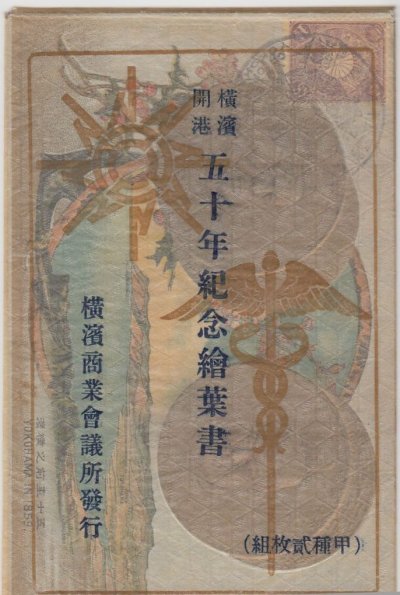 横濱
開港
五十年紀念繪葉書
横濱商業會議所發行
(甲種貳枚組)
YOKOHAMA IN 1859.